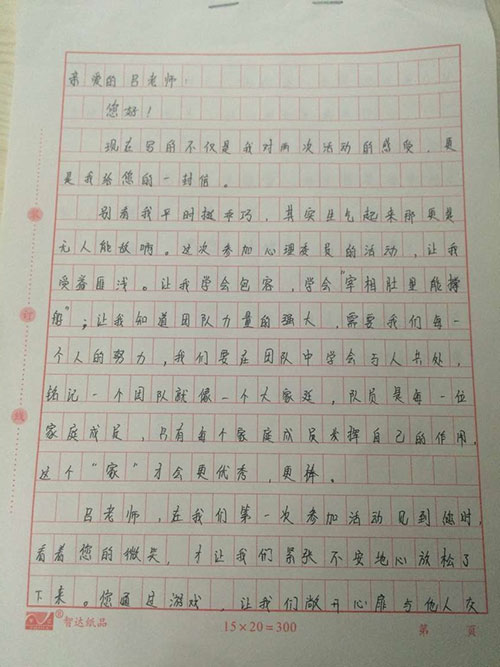 亲爱的吕老师:
您好!
现在写的不仅是我对两次活动的感受,更
是我给您的一封信。
别看我平时挺乖巧,其实生气起来那更是
无人能敌啊。这次参加心理委员的活动,让我
受益匪浅。让我学会包容,学会“宰相肚里能撑
船”;让我知道团队力量的强大,需要我们每一
个人的努力,我们要在团队中学会与人共处,
铭记一个团队就像一个大家庭,队员是每一位
家庭成员,只有每个家庭成员发挥自己的作用,
这个“家”才会更优秀,更棒。
吕老师,在我们第一次参加活动见到您时,
看着您的微笑,才让我们紧张不安地心放松了
下来。您通过游戏,让我们敞开心扉与他人友
装
订
线
智达纸品
15×20=300
第 页